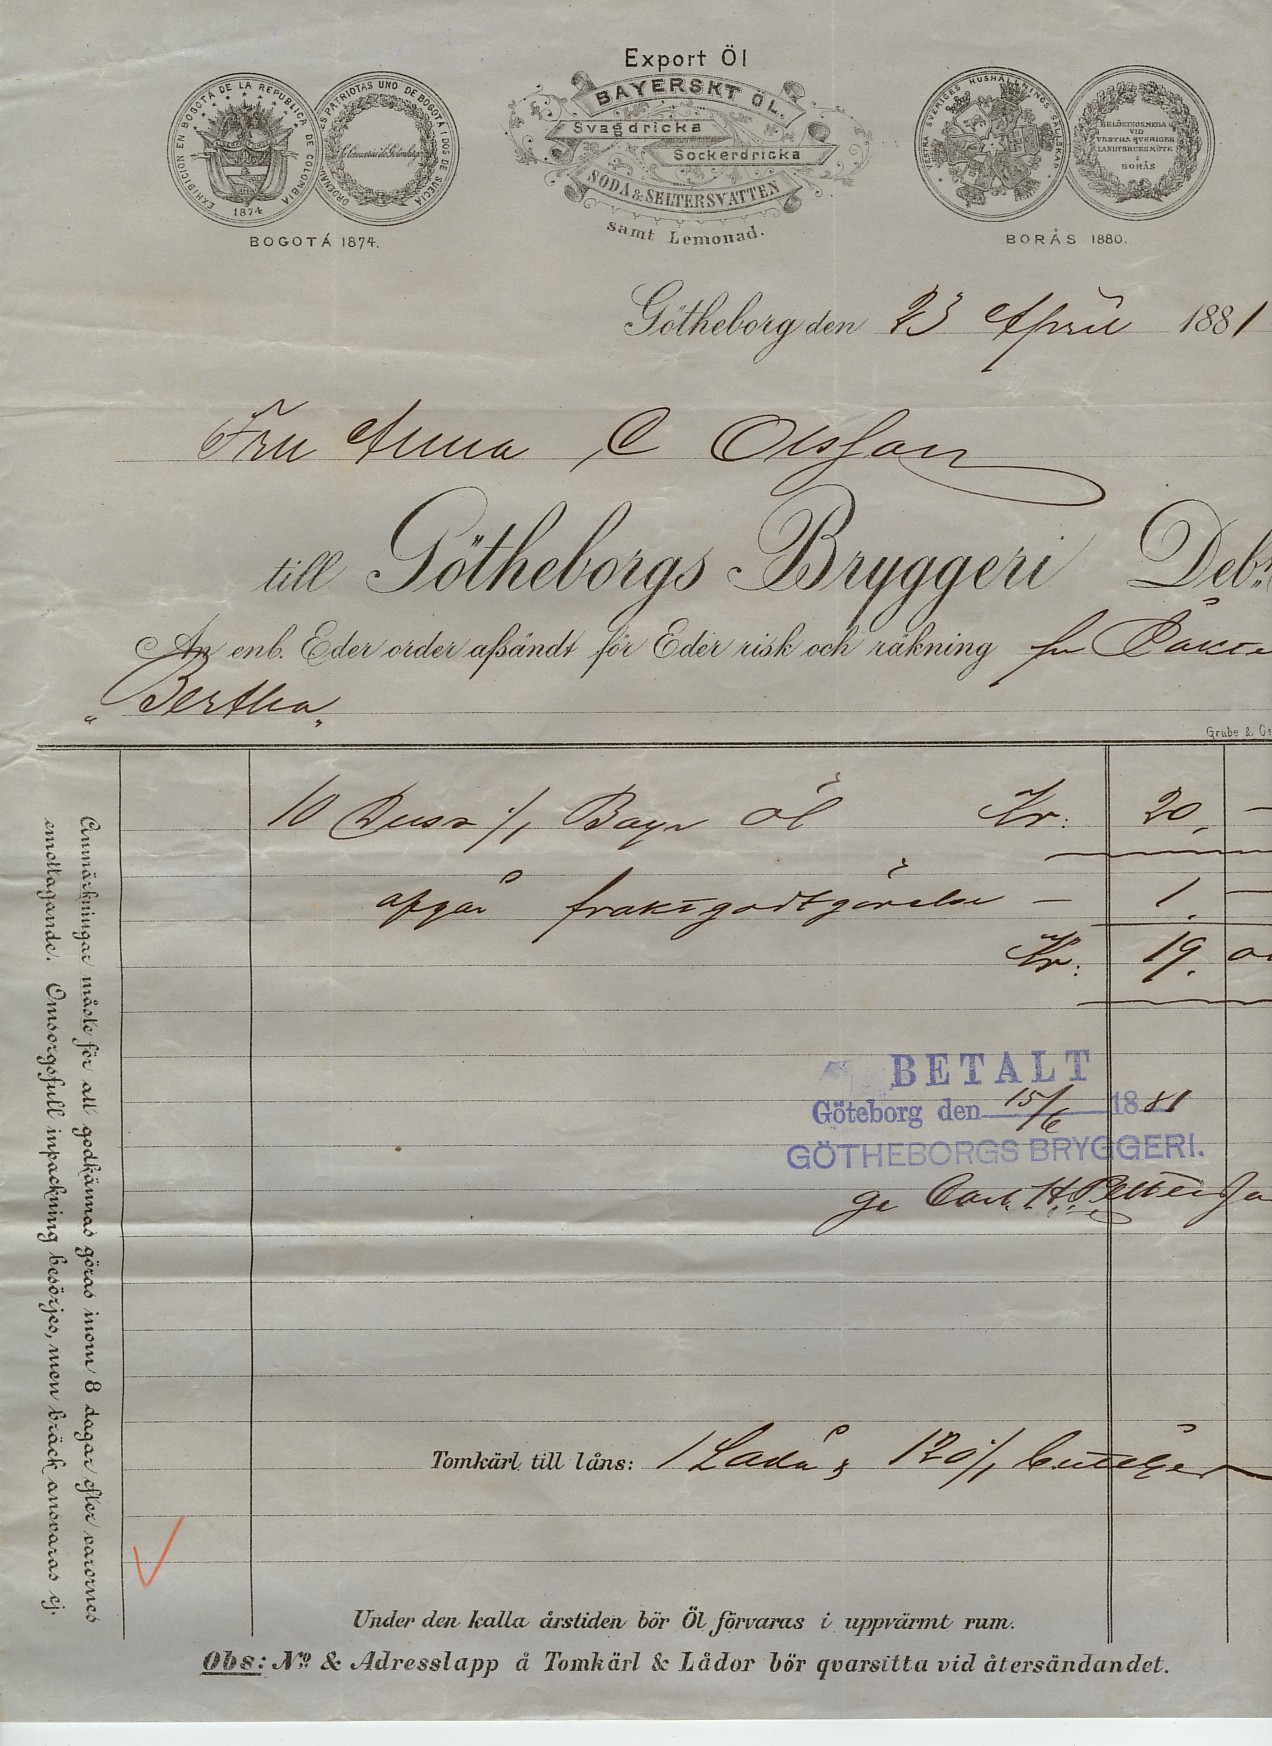 Export Öl
BAYERSKT ÖL.
Svagdricka
Sockerdricka
SODA & SELTERSVATTEN
samt Lemonad.
EXHIBICION EN BOGOTÁ DE LA REPUBLICA DE COLOMBIA
1874
PATRIOTAS UNO DE BOGOTÁ I DOS DE SUECIA
BOGOTÁ 1874.
VESTRA SVERIGES HUSHÅLLNINGS SÄLLSKAP
BELÖNINGSMEDALJ
VID
VESTRA SVERIGES
LANDTBRUKSMÖTE
I
BORÅS
BORÅS 1880.
Götheborg den 23 April 1881
Fru Anna C Olsson
till Götheborgs Bryggeri Debr
An enl. Eder order afsändt för Eder risk och räkning
„Bertha„
Grube & Co
10 Duss 1/1 Bayr Öl Kr: 20. —
afgår fraktgodtgörelse — 1. —
Kr: 19.
BETALT
Göteborg den 15/6 1881
GÖTHEBORGS BRYGGERI.
Carl H. Petterso
Tomkärl till låns: 1 Låda & 120 1/1 buteljer
Anmärkningar måste för att godkännas göras inom 8 dagar efter varornes
emottagande. Omsorgsfull inpackning besörjes, men bräck ansvaras ej.
Under den kalla årstiden bör Öl förvaras i uppvärmt rum.
Obs: No & Adresslapp å Tomkärl & Lådor bör qvarsitta vid återsändandet.